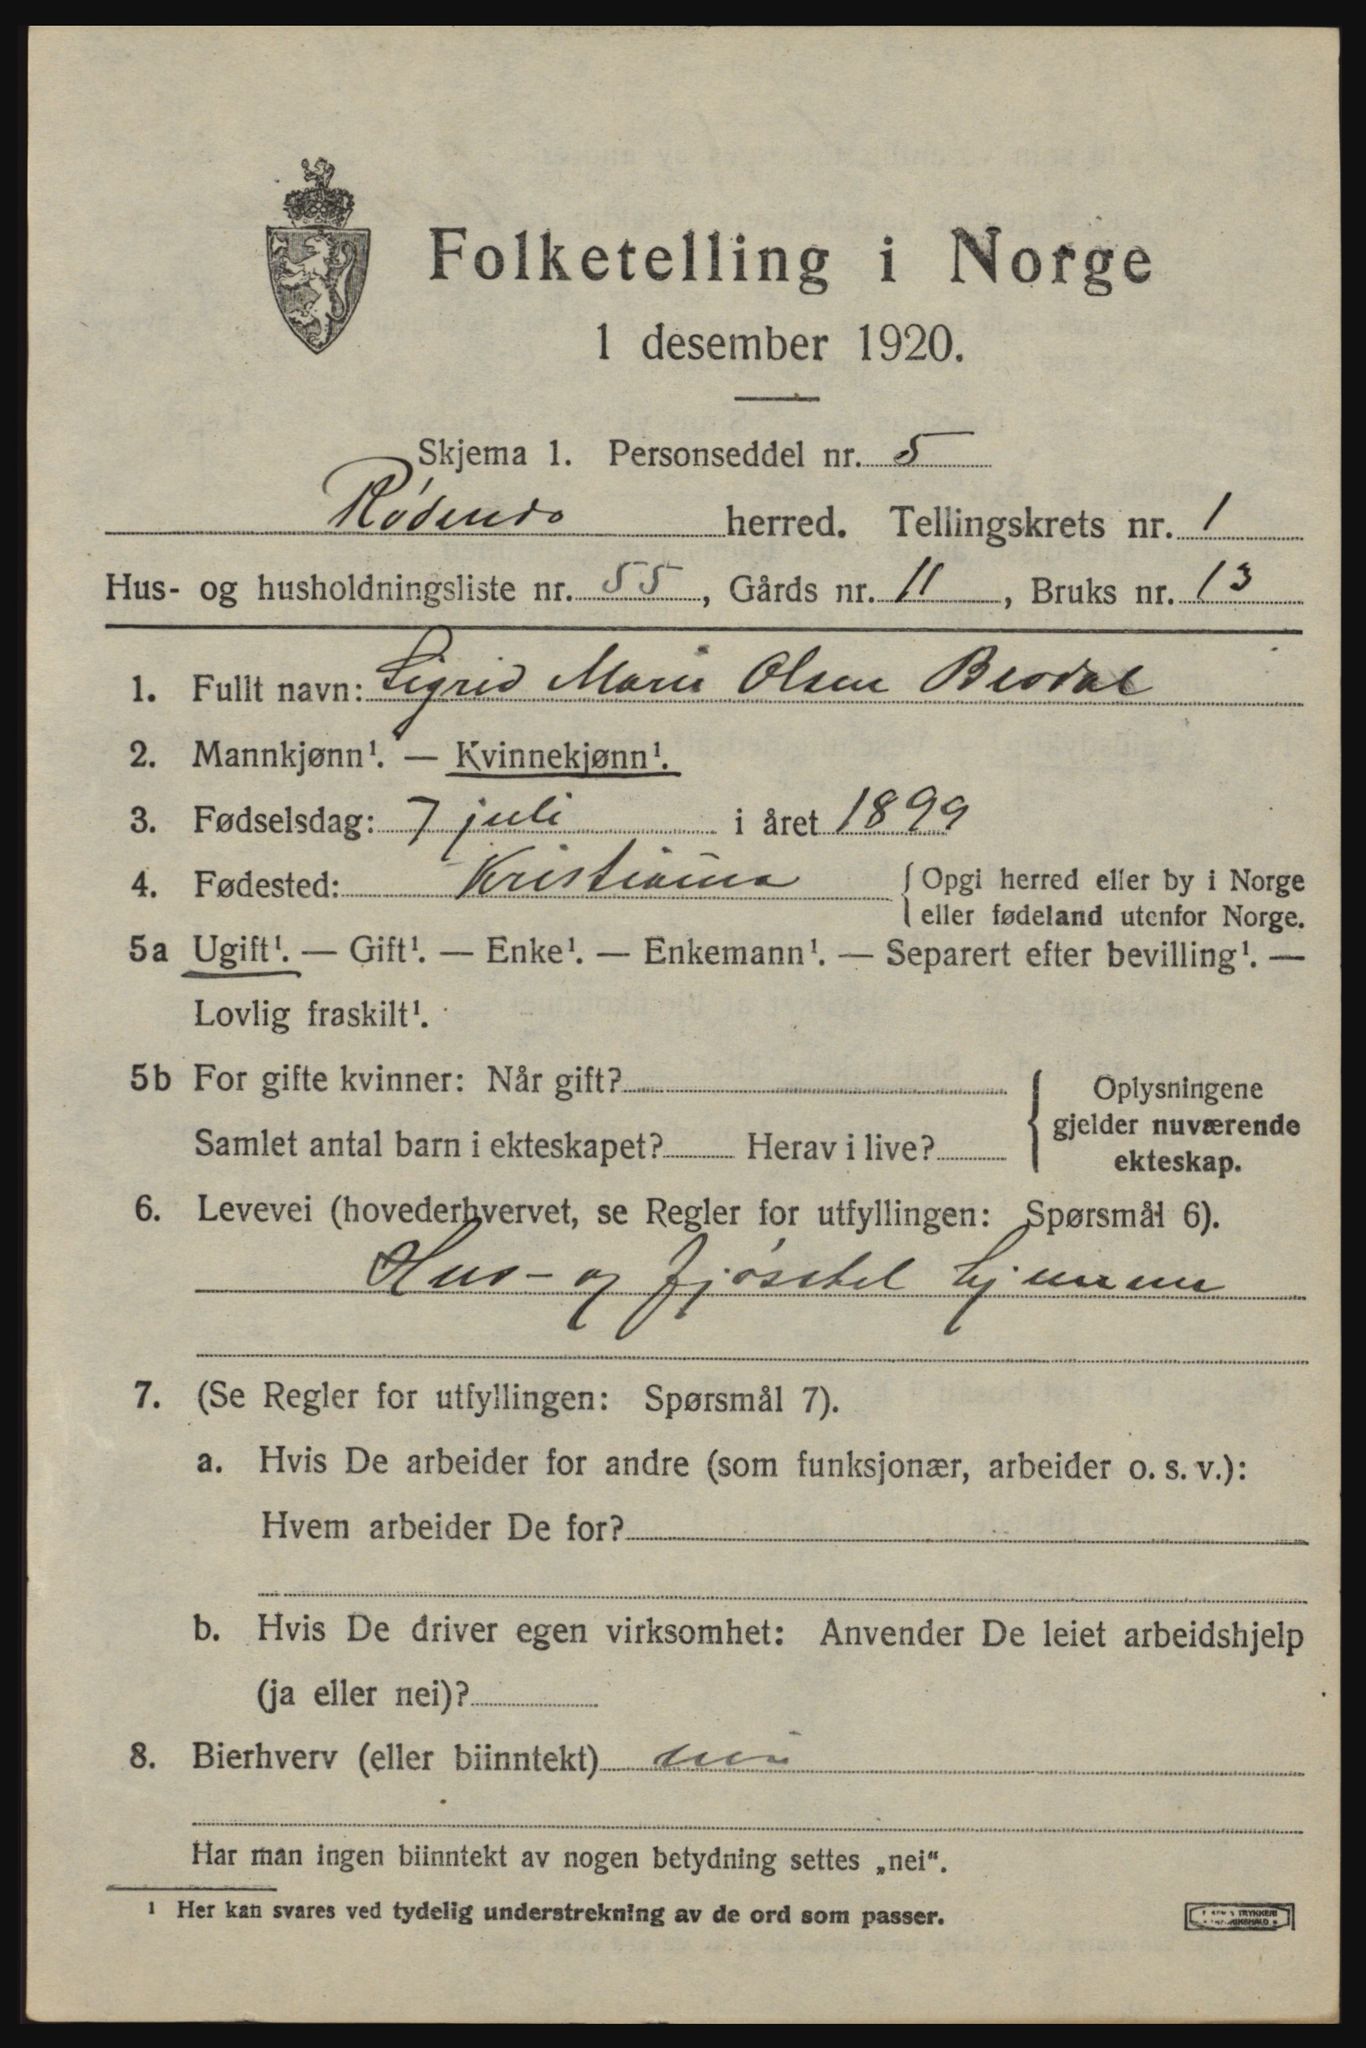 Folketelling i Norge
1 desember 1920.
Skjema 1. Personseddel nr. 5
Rødenes herred. Tellingskrets nr. 1
Hus- og husholdningsliste nr. 55, Gårds nr. 11, Bruks nr. 13
1. Fullt navn: Sigrid Marie Olsen
2. Mannkjønn¹. — Kvinnekjønn¹.
3. Fødselsdag: 7 juli i året 1899
4. Fødested: Kristiania { Opgi herred eller by i Norge
eller fødeland utenfor Norge.
5a Ugift¹. — Gift¹. — Enke¹. — Enkemann¹. — Separert efter bevilling¹. —
Lovlig fraskilt¹.
5b For gifte kvinner: Når gift?
Samlet antal barn i ekteskapet? Herav i live?
Oplysningene
gjelder nuværende
ekteskap.
6. Levevei (hovederhvervet, se Regler for utfyllingen: Spørsmål 6).
Hus- og fjøsstel hjemme
7. (Se Regler for utfyllingen: Spørsmål 7).
a. Hvis De arbeider for andre (som funksjonær, arbeider o. s. v.):
Hvem arbeider De for?
b. Hvis De driver egen virksomhet: Anvender De leiet arbeidshjelp
(ja eller nei)?
8. Bierhverv (eller biinntekt) nei
Har man ingen biinntekt av nogen betydning settes „nei“.
¹ Her kan svares ved tydelig understrekning av de ord som passer.